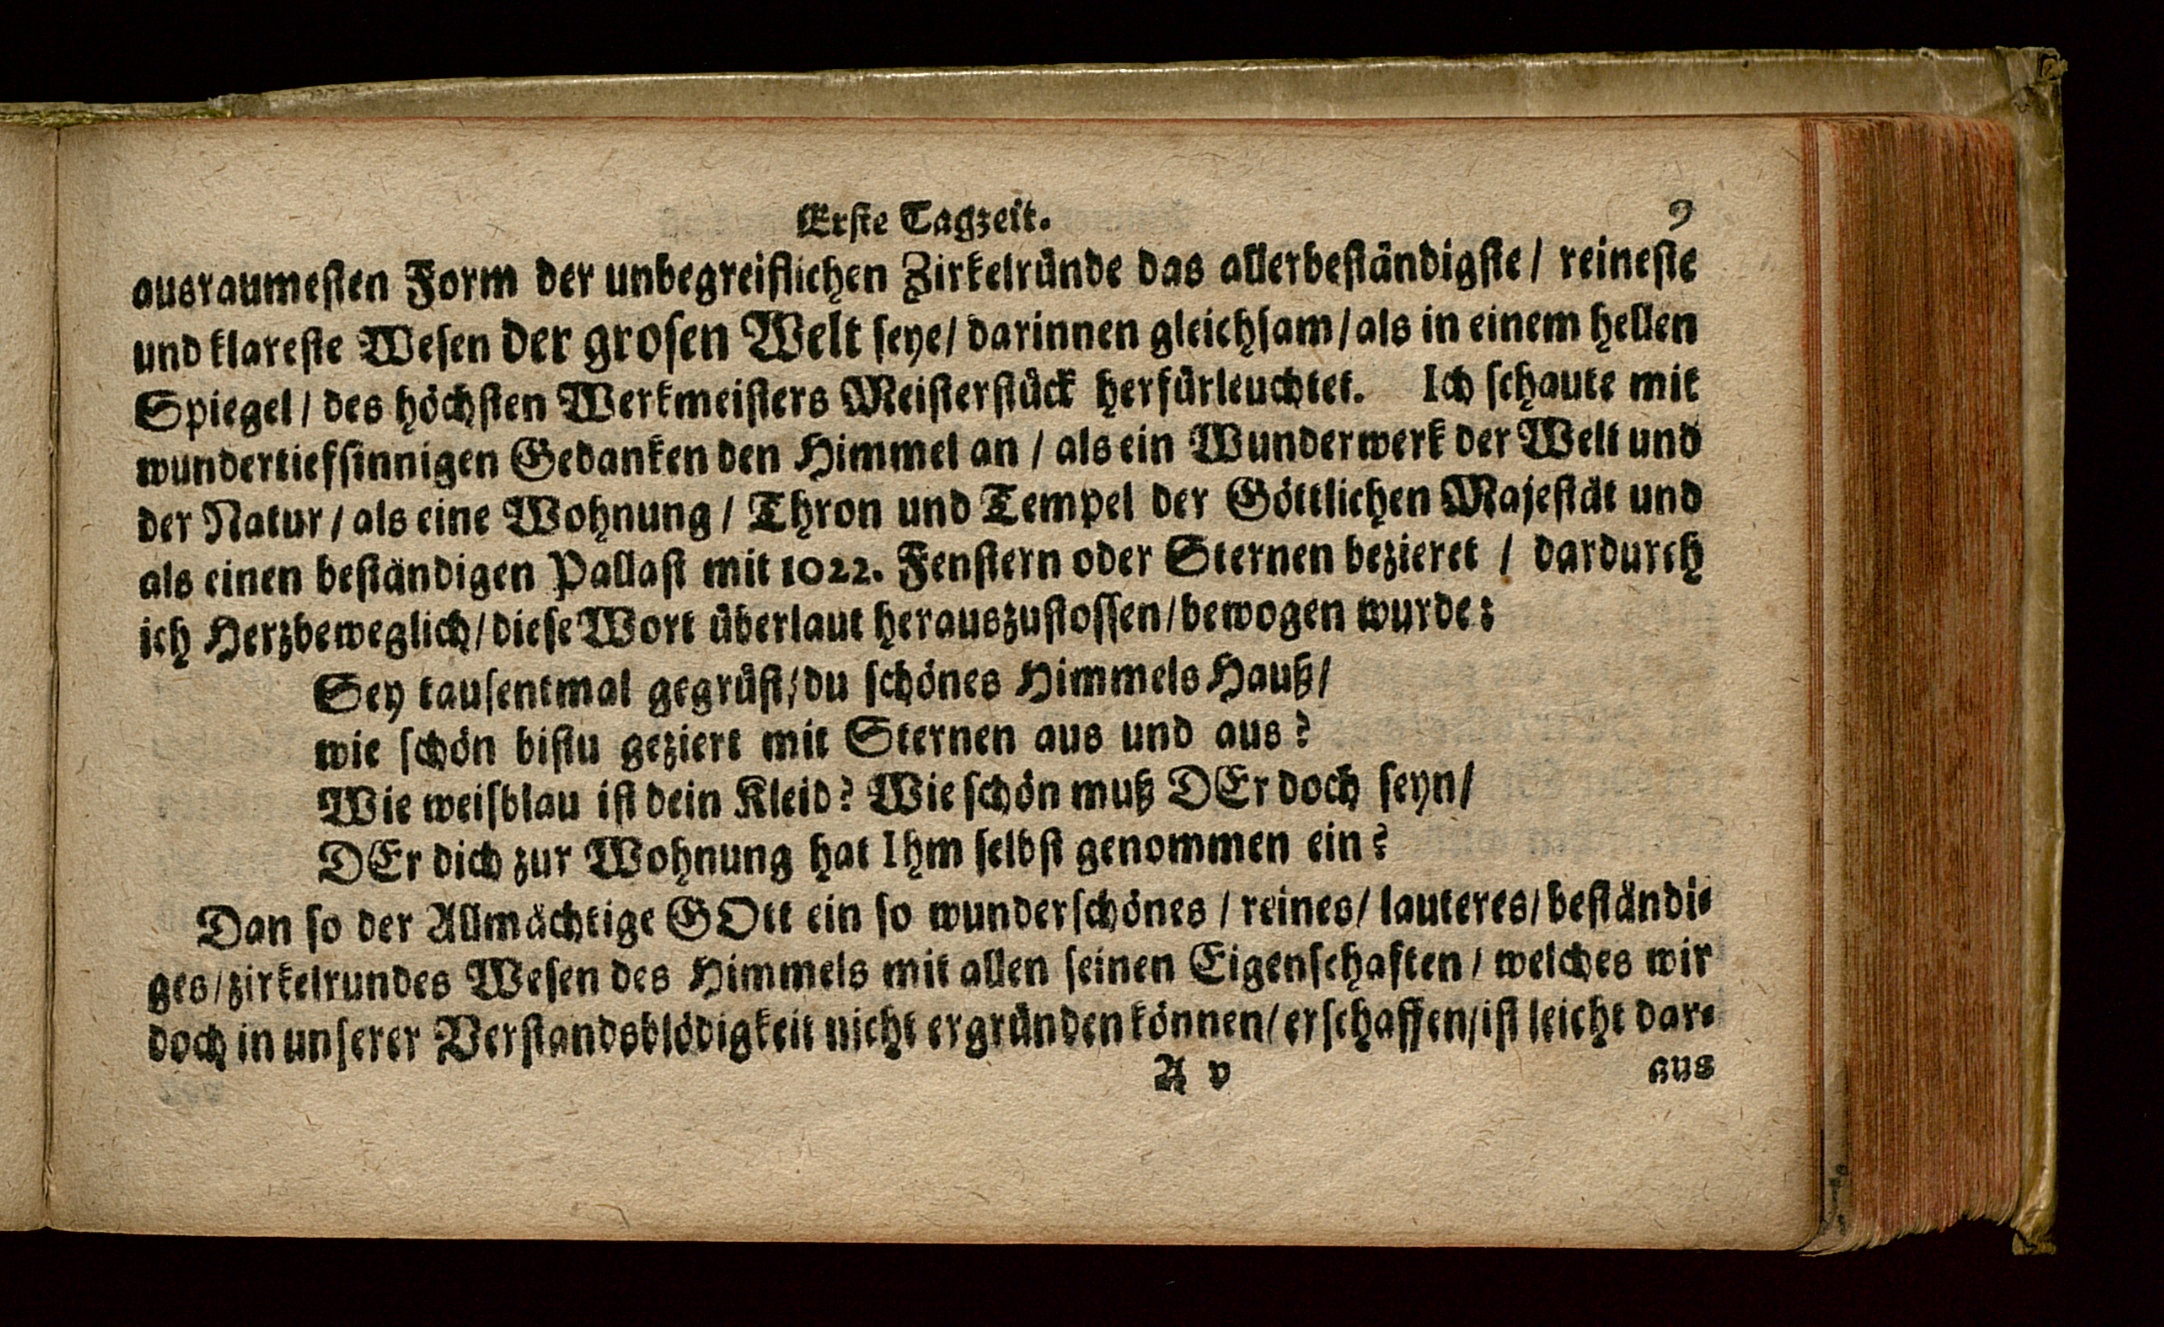 Erste Tagzeit. 9
ausraumesten Form der unbegreiflichen Zirkelründe das allerbeständigste / reineste
und klareste Wesen der grosen Welt seye / darinnen gleichsam / als in einem hellen
Spiegel / des höchsten Werkmeisters Meisterstück herfürleuchtet. Ich schaute mit
wundertiefsinnigen Gedanken den Himmel an / als ein Wunderwerk der Welt und
der Natur / als eine Wohnung / Thron und Tempel der Göttlichen Majestät und
als einen beständigen Pallast mit 1022. Fenstern oder Sternen bezieret / dardurch
ich Herzbeweglich / diese Wort überlaut herauszustossen / bewogen wurde:
Sey tausentmal gegrüst / du schönes Himmels Hauß /
wie schön bistu geziert mit Sternen aus und aus?
Wie weisblau ist dein Kleid? Wie schön muß DEr doch seyn /
DEr dich zur Wohnung hat Ihm selbst genommen ein?
Dan so der Allmächtige GOtt ein so wunderschönes / reines / lauteres / beständi-
ges / zirkelrundes Wesen des Himmels mit allen seinen Eigenschaften / welches wir
doch in unserer Verstandsblödigkeit nicht ergründen können / erschaffen / ist leicht dar-
A v aus